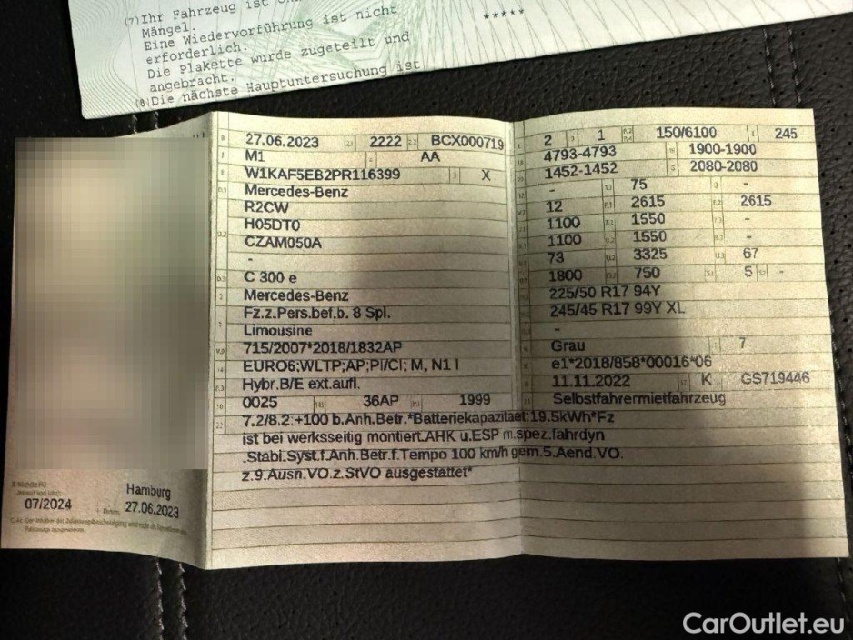 (7)Ihr Fahrzeug ist
Mängel.
Eine Wiedervorführung ist nicht
erforderlich.
Die Plakette wurde zugeteilt und
angebracht.
(8)Die nächste Hauptuntersuchung ist
*****
27.06.2023 2222 BCX000719
M1 AA
W1KAF5EB2PR116399 X
Mercedes-Benz
R2CW
H05DT0
CZAM050A
-
C 300 e
Mercedes-Benz
Fz.z.Pers.bef.b. 8 Spl.
Limousine
715/2007*2018/1832AP
EURO6;WLTP;AP;PI/CI; M, N1 I
Hybr.B/E ext.aufl.
0025 36AP 1999
2 1 150/6100 245
4793-4793 1900-1900
1452-1452 2080-2080
- 75 -
12 2615 2615
1100 1550 -
1100 1550 -
73 3325 67
1800 750 5 -
225/50 R17 94Y
245/45 R17 99Y XL
-
Grau 7
e1*2018/858*00016*06
11.11.2022 K GS719446
Selbstfahrermietfahrzeug
7.2/8.2:+100 b.Anh.Betr.*Batteriekapazitaet:19.5kWh*Fz
ist bei werksseitig montiert.AHK u.ESP m.spez.fahrdyn
.Stabi.Syst.f.Anh.Betr.f.Tempo 100 km/h gem.5.Aend.VO.
z.9.Ausn.VO.z.StVO ausgestattet*
07/2024
Hamburg
27.06.2023
CarOutlet.eu